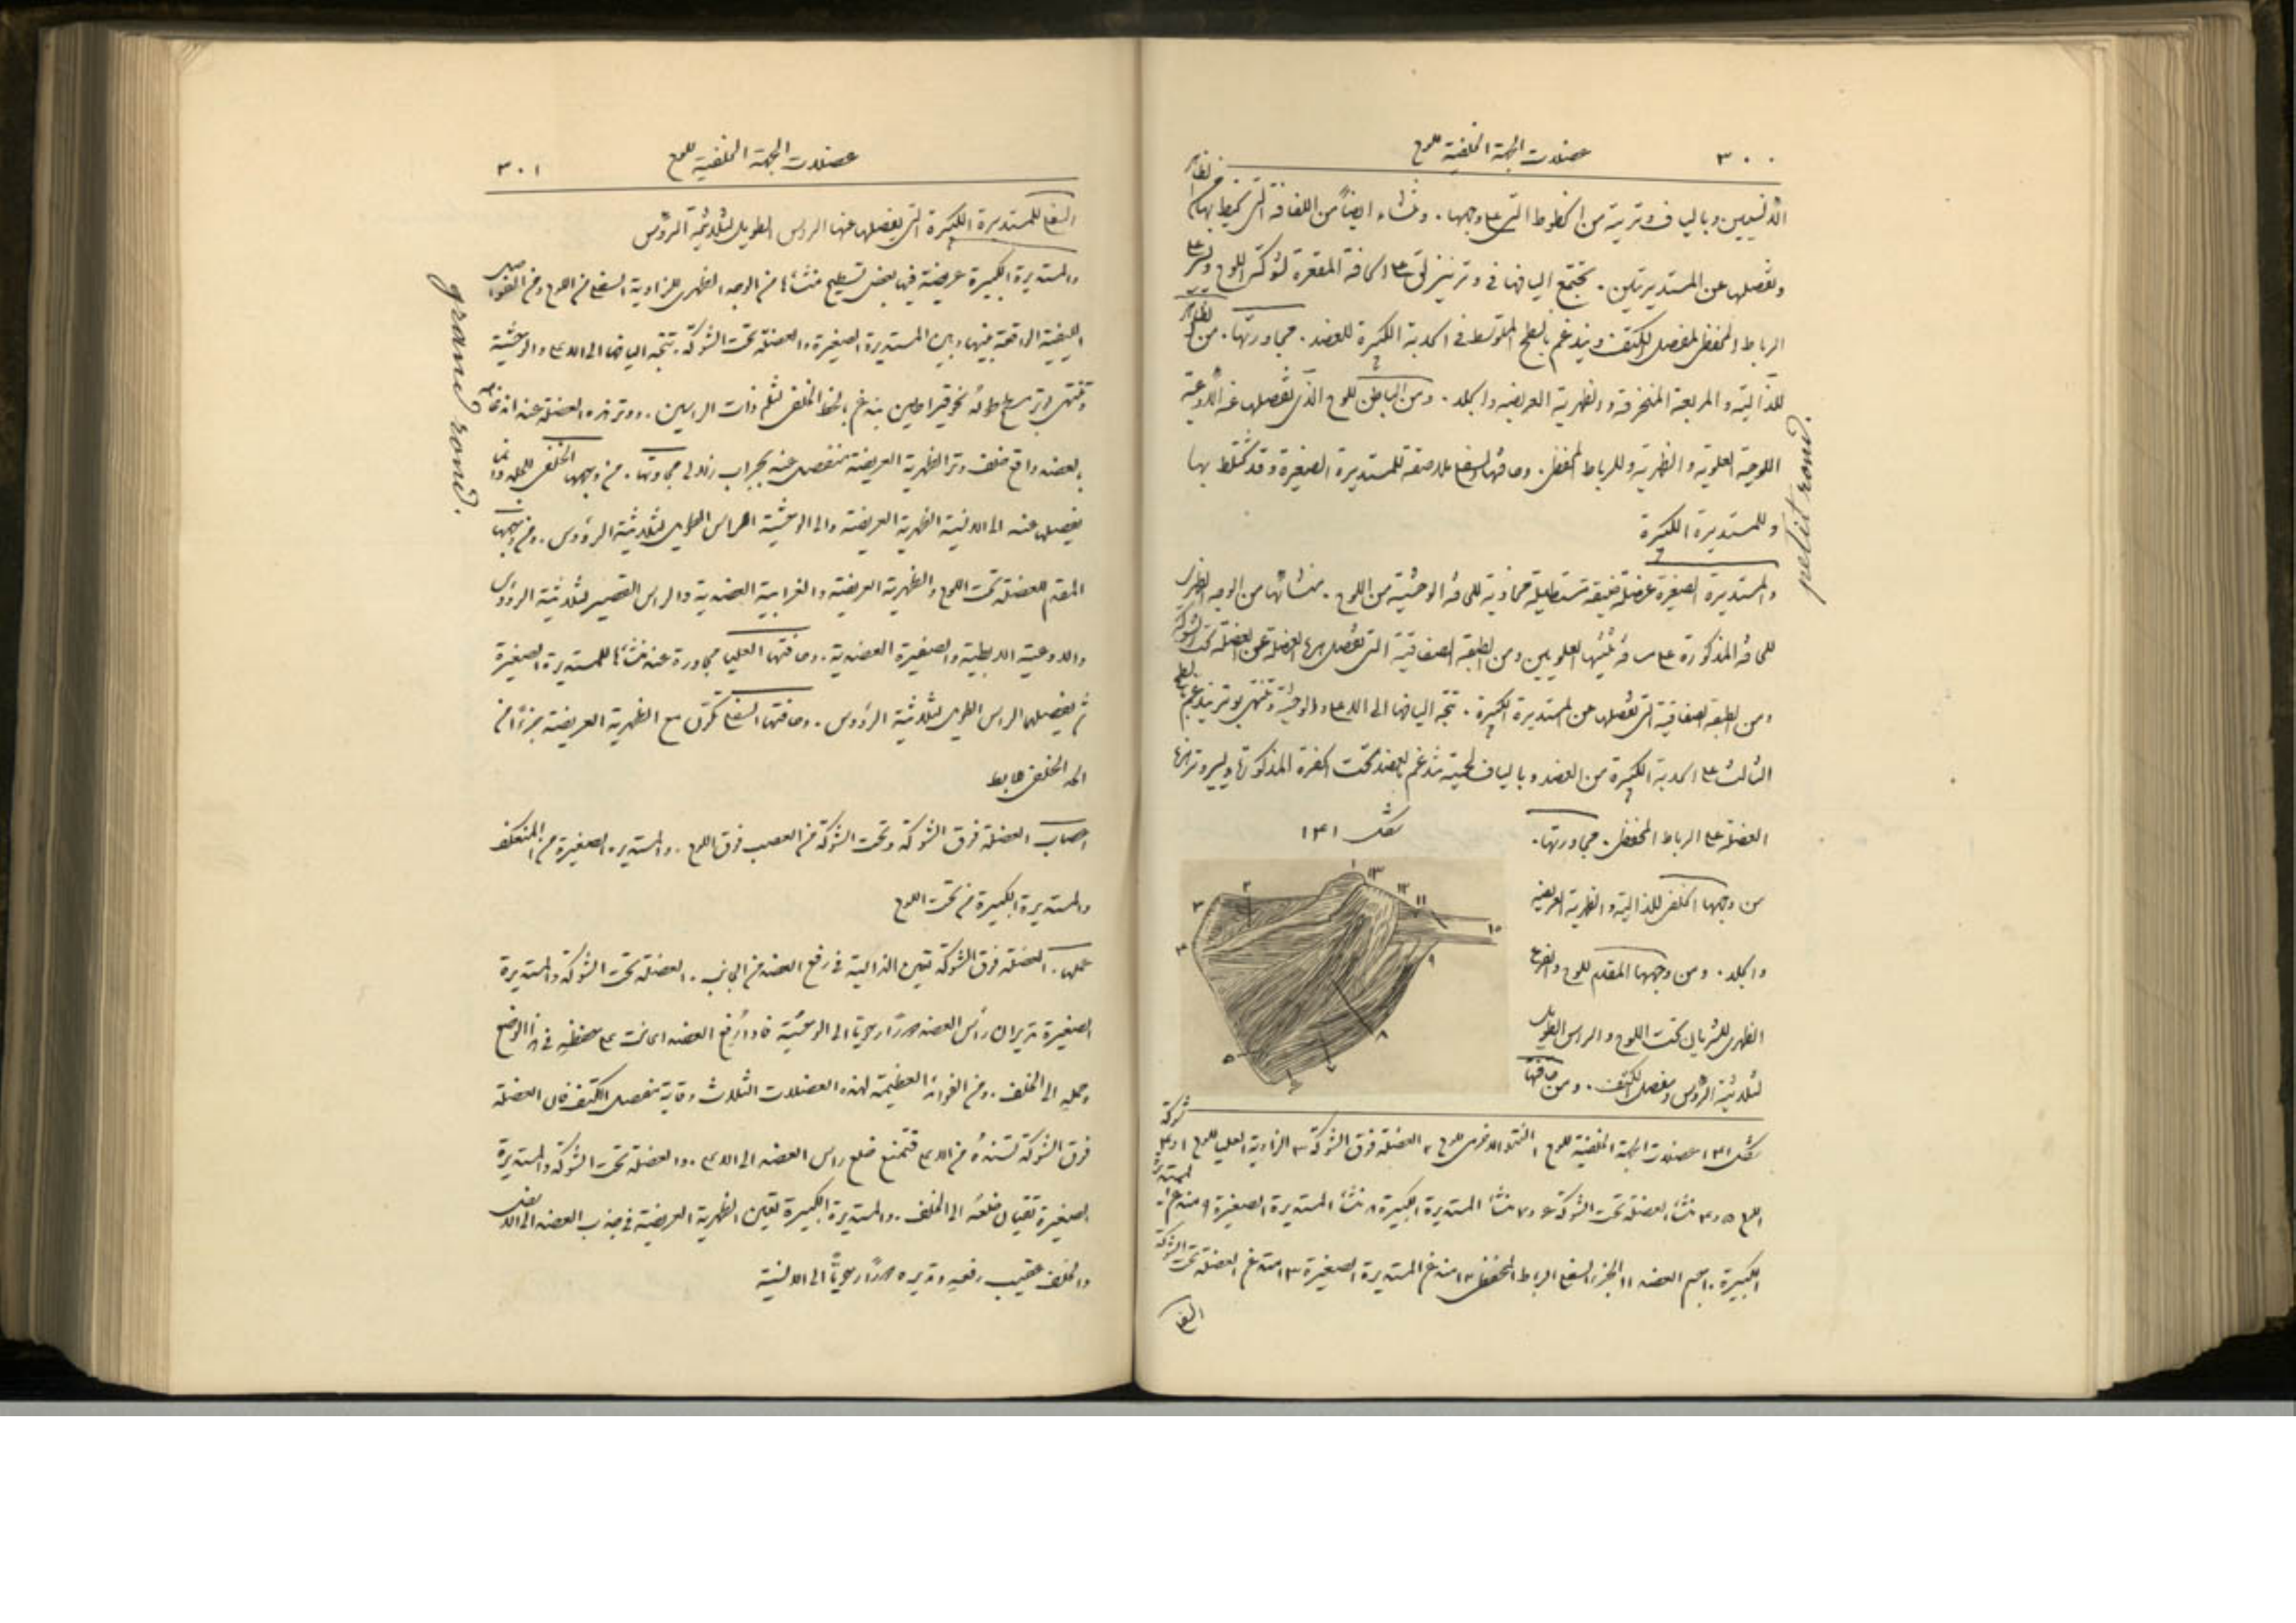 ٣٠٠
عضلات الجهة الخلفية للوح
الانسيين وبالياف وترية من الخطوط التي على وجهها . وتنشاء ايضاً من اللفافة التي تحيط بها
وتفصلها عن المستديرتين . تجتمع اليافها في وتر ينزلق على الحافة المقعرة لشوكة اللوح ويستر على
الرباط المحفظي لمفصل الكتف ويندغم بالسطح المتوسط في الحدبة الكبيرة للعضد . مجاورتها . من
للذالية والمربعة المنحرفة والظهرية العريضة والجلد . ومن الباطن للوح الذي تفصلها عنه الاوعية
اللوحية العلوية والظهرية وللرباط المحفظي . وحافتها السفلى ملاصقة للمستديرة الصغيرة وقد تختلط بها
وللمستديرة الكبيرة
والمستديرة الصغيرة عضلة ضيقة مستطيلة محاذية للحافة الوحشية من اللوح . منشاها من الوجه الظهري
للحافة المذكورة على مسافة ثلثيها العلويين ومن الطبقة الصفاقية التي تفصل هذه العضلة عن العضلة تحت الشوكة
ومن الطبقة الصفاقية التي تفصلها عن المستديرة الكبيرة . تتجه اليافها الى الاعلى والوحشية وتنتهي بوتر يندغم
الثالث على الحدبة الكبيرة من العضد وبالياف لحمية تندغم بالعضد تحت الحفرة المذكورة ويسير وتر هذه
العضلة على الرباط المحفظي . مجاورتها .
من وجهها الخلفي للذالية والظهرية العريضة
والجلد . ومن وجهها المقدم للوح والفرع
الظهري للشريان تحت اللوح والراس الطويل
لثلاثية الرؤس ومفصل الكتف . ومن حافتها
شكل ١٤١
١
٢
٣
٤
٥
٧
٨
٩
١١
١٢
١٣
١٥
شكل ١٤١ عضلات الجهة الخلفية للوح ١ النتو الاخرمي للوح ٢ العضلة فوق الشوكة ٣ الزاوية العليا للوح
اللوح ٥ و٤ منشأ العضلة تحت الشوكة ٦ و٧ منشأ المستديرة الكبيرة ٨ منشأ المستديرة الصغيرة ٩ مندغم
الكبيرة ١٠ جسم العضد ١١ الجزء السفلي الرباط المحفظي ١٢ مندغم المستديرة الصغيرة ١٣ مندغم العضلة تحت الشوكة
petit rond.
عضلات الجهة الخلفية للوح
٣٠١
السفلى للمستديرة الكبيرة التي يفصلها عنها الراس الطويل لثلاثية الرؤس
والمستديرة الكبيرة عريضة فيها بعض تسطيح منشأها من الوجه الظهري للزاوية السفلى من اللوح ومن الفواصل
الليفية الواقعة بينها وبين المستديرة الصغيرة والعضلة تحت الشوكة . تتجه اليافها الى الاعلى والوحشية
وتنتهي بوتر مسطح طوله نحو قيراطين يندغم بالخط الخلفي لثلم ذات الراسين . ووتر هذه العضلة عند اندغامه
بالعضد واقع خلف وتر الظهرية العريضة منفصل عنه بجراب زلالي مجاورتها . من وجهها الخلفي للجلد
يفصلها عنه الى الانسية الظهرية العريضة والى الوحشية الراس الطويل لثلاثية الرؤوس . ومن وجهها
المقدم للعضلة تحت اللوح والظهرية العريضة والغرابية العضدية والراس القصير لثلاثية الرؤوس
والاوعية الابطية والضفيرة العضدية . وحافتها العليا مجاورة عند منشأها للمستديرة الصغيرة
ثم يفصلهما الراس الطويل لثلاثية الرؤوس . وحافتها السفلى تكون مع الظهرية العريضة جزءًا من
الحد الخلفي للابط
اعصاب العضلة فوق الشوكة وتحت الشوكة من العصب فوق اللوح . والمستديرة الصغيرة من المنعكف
والمستديرة الكبيرة من تحت اللوح
عملها . العضلة فوق الشوكة تعين الذالية في رفع العضد من الجانب . العضلة تحت الشوكة والمستديرة
الصغيرة تديران رأس العضد دورًا رحويًا الى الوحشية فاذا رفع العضد اعانتا على حفظه في هذا الوضع
وحمله الى الخلف . ومن الفوائد العظيمة لهذه العضلات الثلاث وقاية مفصل الكتف فان العضلة
فوق الشوكة تسنده من الاعلى فتمنع خلع راس العضد الى الاعلى . والعضلة تحت الشوكة والمستديرة
الصغيرة تقيان خلعه الى الخلف . والمستديرة الكبيرة تعين الظهرية العريضة في جذب العضد الى الاسفل
والخلف عقيب رفعه وتديره دورًا رحويًا الى الانسية
grand rond.